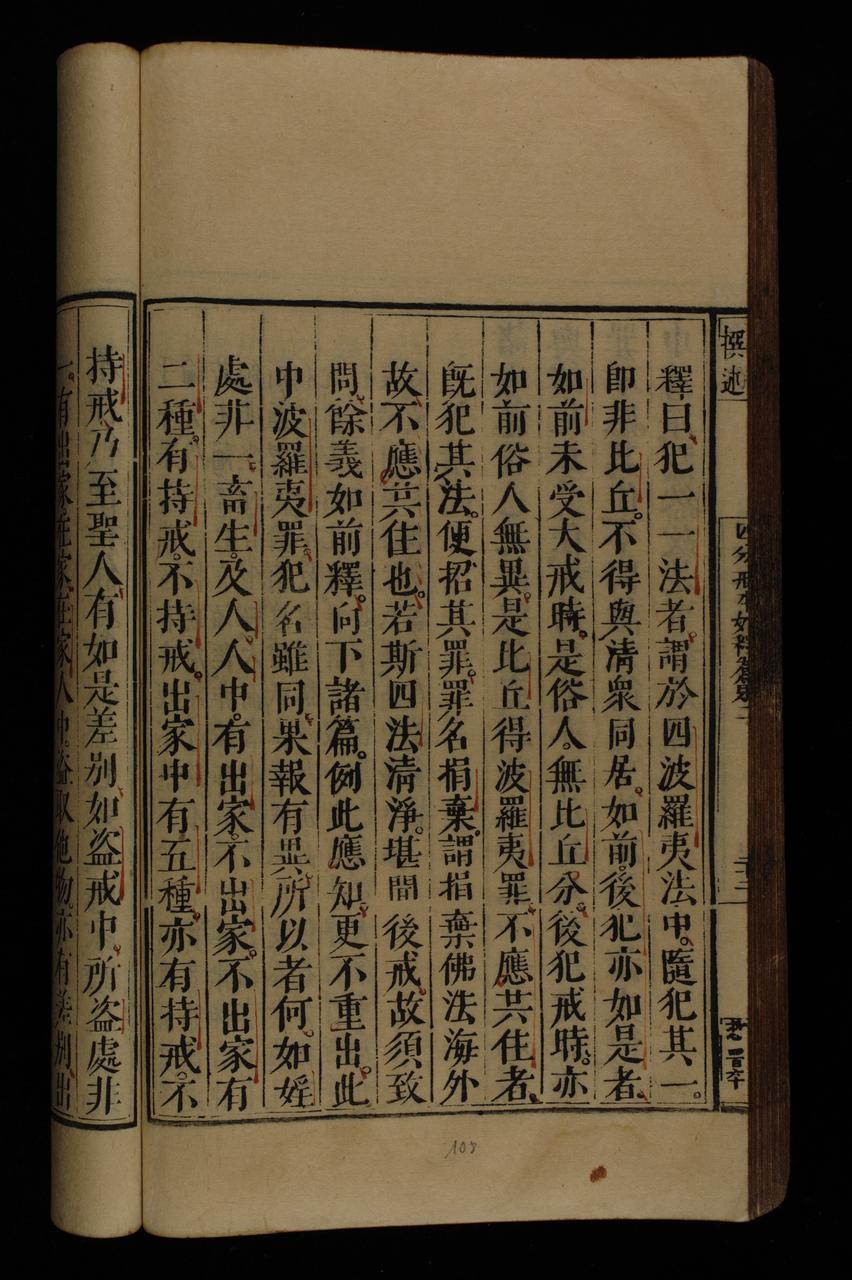 撰述
四分戒本如釋篇第二
釋曰犯一一法者。謂於四波羅夷法中。隨犯其一。
即非比丘。不得與清衆同居。如前。後犯亦如是者。
如前未受大戒時。是俗人。無比丘分。後犯戒時。亦
如前俗人無異。是比丘得波羅夷罪。不應共住者。
既犯其法。便招其罪。罪名捐棄。謂捐棄佛法海外
故不應共住也。若斯四法清淨。堪聞後戒。故須致
問。餘義如前釋。向下諸篇。例此應知。更不重出。此
中波羅夷罪。犯名雖同。果報有異。所以者何。如婬
處非一。畜生。及人。人中。有出家。不出家。不出家有
二種。有持戒。不持戒。出家中有五種。亦有持戒。不
持戒乃至聖人。有如是差别。如盜戒中。所盜處非
一。有出家在家。在家人中。盜取他物。亦有差别。出
108